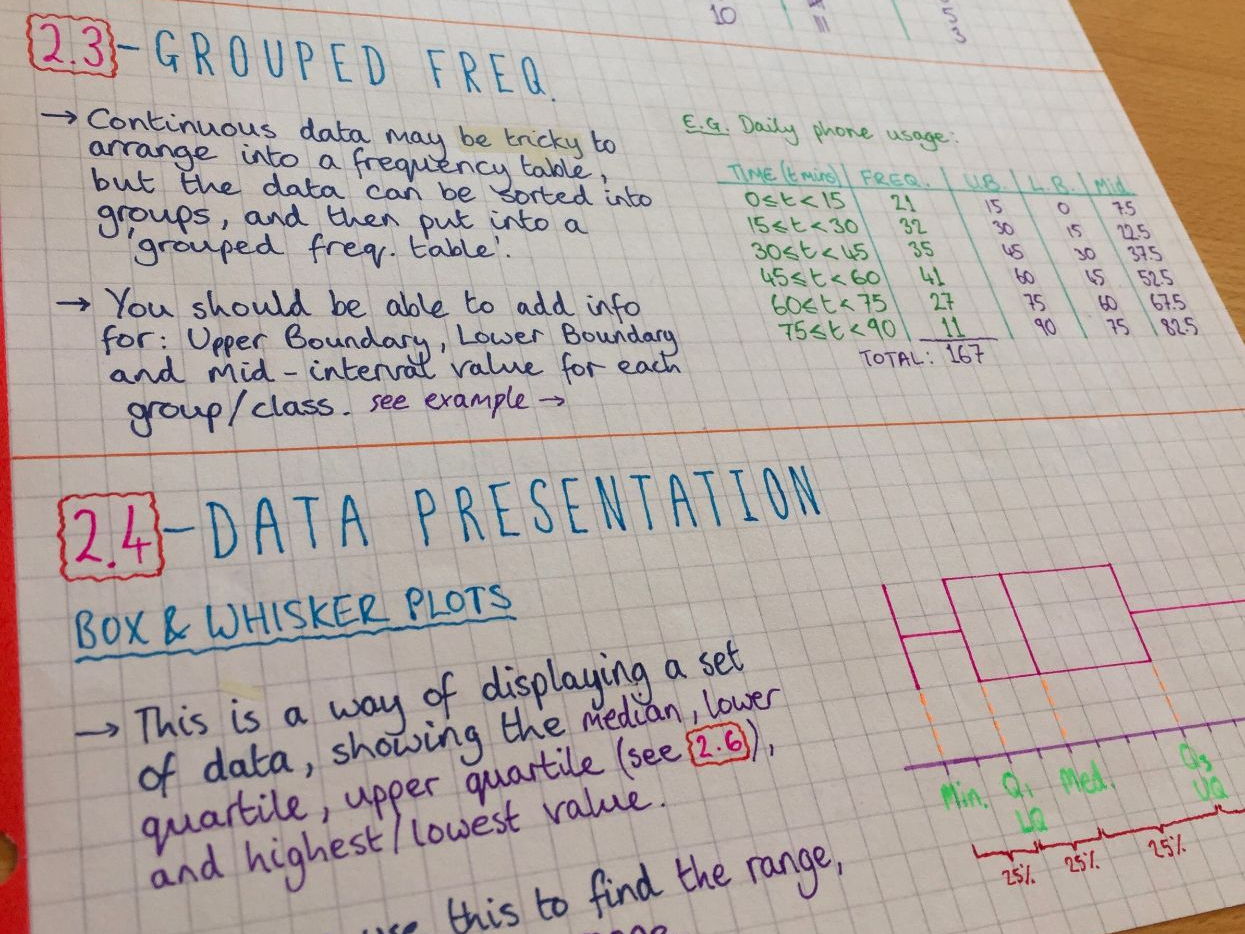 10 5
3
2.3 - GROUPED FREQ.
→ Continuous data may be tricky to
arrange into a frequency table,
but the data can be sorted into
groups, and then put into a
'grouped freq. table'.
→ You should be able to add info
for: Upper Boundary, Lower Boundary
and mid-interval value for each
group/class. see example →
E.G. Daily phone usage:
TIME (t mins) | FREQ. | U.B. | L.B. | Mid.
0≤t<15 21 15 0 7.5
15≤t<30 32 30 15 22.5
30≤t<45 35 45 30 37.5
45≤t<60 41 60 45 52.5
60≤t<75 27 75 60 67.5
75≤t<90 11 90 75 82.5
TOTAL: 167
2.4 - DATA PRESENTATION
BOX & WHISKER PLOTS
→ This is a way of displaying a set
of data, showing the median, lower
quartile, upper quartile (see 2.6),
and highest/lowest value.
this to find the range,
Min. Q₁ Med. Q₃
LQ UQ
25% 25% 25%